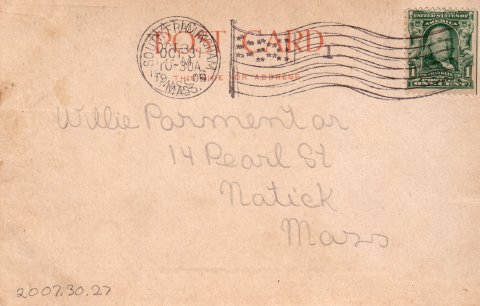 POST CARD
THIS SIDE FOR ADDRESS
SOUTH FRAMINGHAM
OCT 30
10-30A
MASS.
1
UNITED STATES OF AMERICA
FRANKLIN
1 ONE CENT 1
Willie Parmentar
14 Pearl St
Natick
Mass
2007.30.27